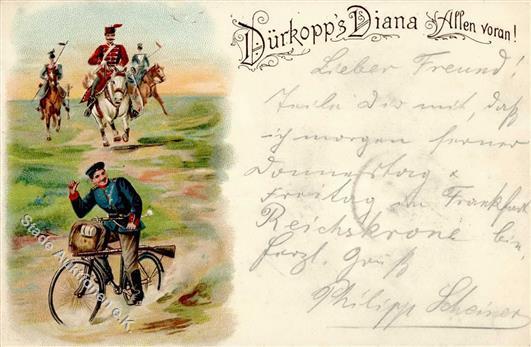 Dürkopp's Diana Allen voran!
Lieber Freund!
Teile Dir mit, daß
ich morgen ferner
Donnerstag &
Freitag in Frankfurt
Reichskrone bin,
herzl. Gruß
Philipp Scheiner
Stade Auktionen e.K.